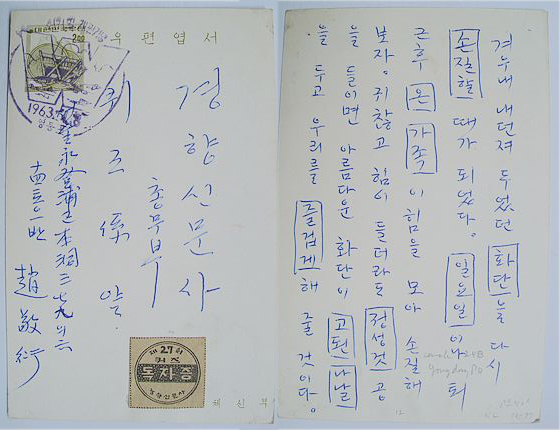 우편엽서
1963
영등포
경향신문사
총무부
퀴즈係 앞.
永登浦區 本洞 三七九의 六
제 27 회
퀴즈
독자증
경향신문사
체신부
겨우내 내던져 두었던 화단을 다시
손질할 때가 되었다. 일요일이나 퇴
근후 온 가족이 힘을 모아 손질해
보자. 귀찮고 힘이 들더라도 정성껏 공
을 들이면 아름다운 화단이 고된 나날
을 두고 우리를 즐겁게 해 줄 것이다.